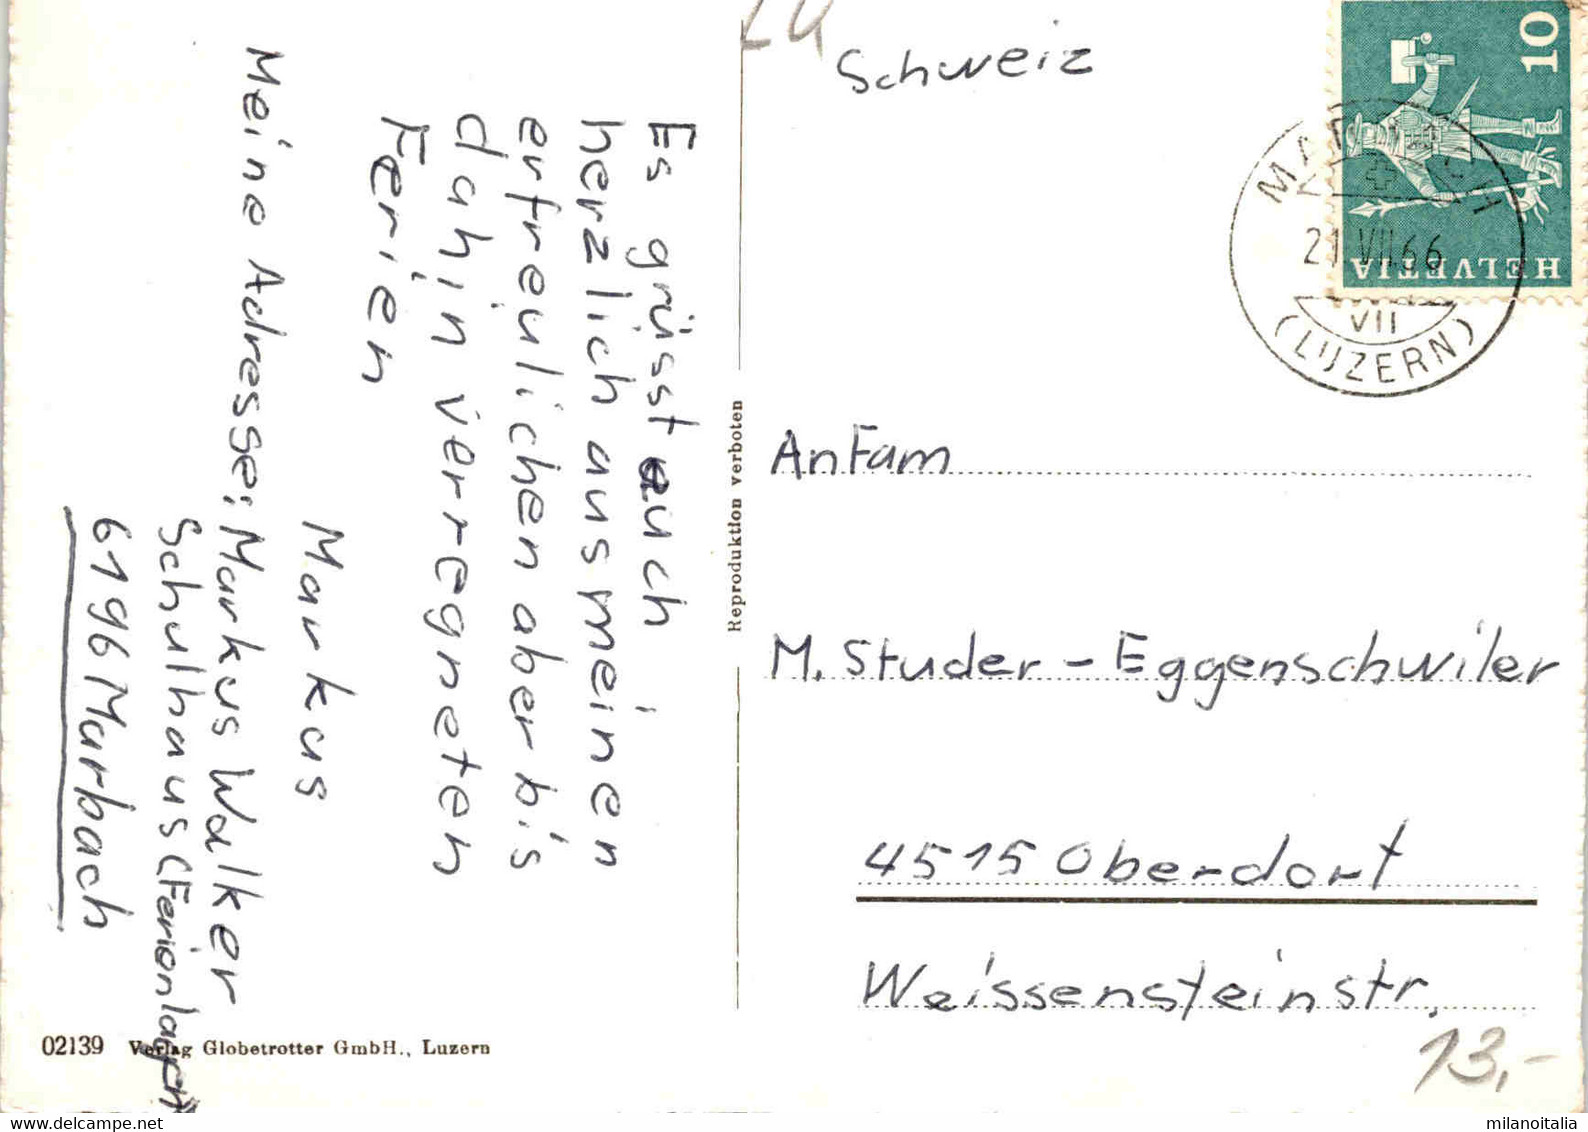 Es grüsst euch
herzlich aus meinen
erfreulichen aber bis
dahin verregneten
Ferien
Markus
Meine Adresse: Markus Walker
Schulhaus (Ferienlager)
6196 Marbach
02139 Verlag Globetrotter GmbH., Luzern
Reproduktion verboten
LU
Schweiz
10
HELVETIA
MARBACH
21.VII.66
VII
(LUZERN)
An Fam
M. Studer - Eggenschwiler
4515 Oberdorf
Weissensteinstr.
13,-
milanoitalia